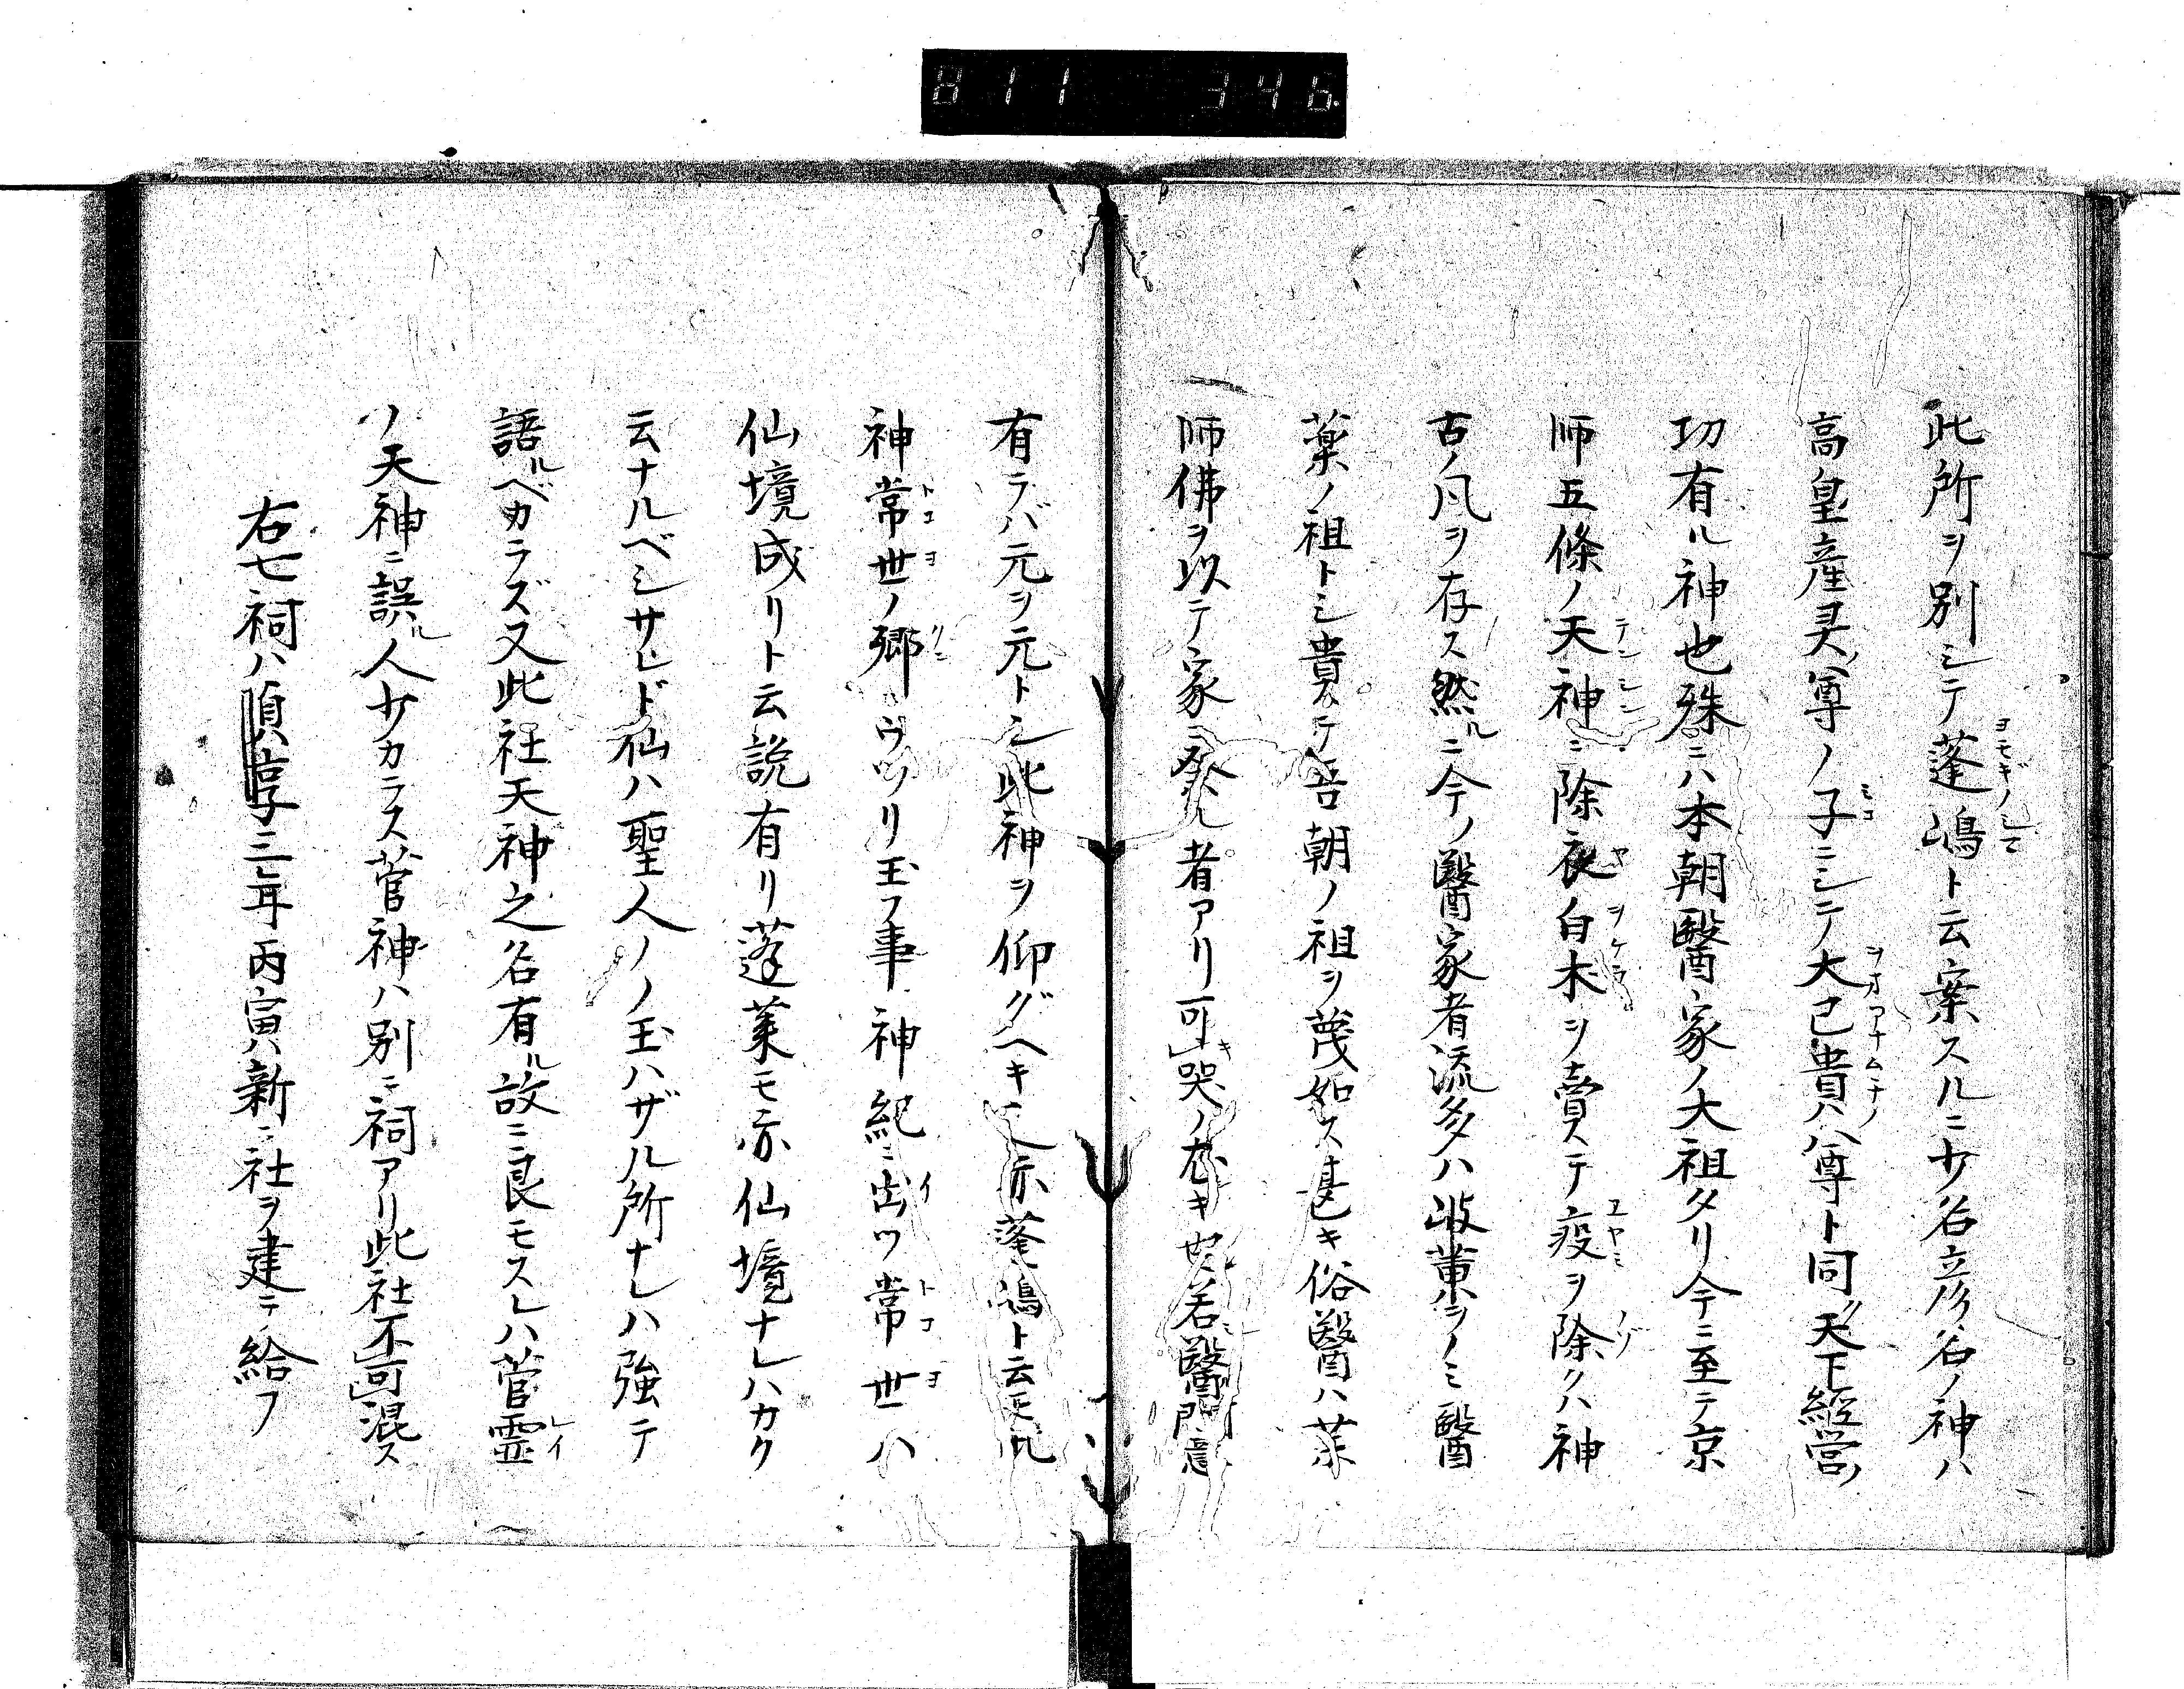 811 346
此所ヲ別シテ蓬嶋ト云案スルニ少名立彦名ノ神ハ
高皇産灵尊ノ子ニシテ大己貴ハ尊ト同ク天下経営ノ
功有ル神也殊ニハ本朝醫家ノ大祖タリ今ニ至テ京
師五條ノ天神ニ除夜白木ヲ賣テ疫ヲ除クハ神
古ノ凡ヲ存ス然ルニ今ノ醫家者流多ハ岐董ヲノミ醫
薬ノ祖トシ貴テ吾朝ノ祖ヲ蔑如ス甚キ俗醫ハ薬
師佛ヲ以テ家ニ祭ル者アリ可哭ノ尤キ也若醫門意
有ラバ元ヲ元トシ此神ヲ仰グヘキ亦蓬嶋ト云モ凡
神常世ノ郷ニウツリ玉フ事神紀ニ出ツ常世ハ
仙境成リト云説有リ蓬莱モ亦仙境ナレハカク
云ナルベシサレド仙ハ聖人ノノ玉ハザル所ナレハ強テ
語ルベカラズ又此社天神之名有ル故ニ良モスレハ菅霊
ノ天神ニ誤ル人少カラス菅神ハ別ニ祠アリ此社不可混ス
右七祠ハ貞享三年丙寅新ニ社ヲ建テ給フ